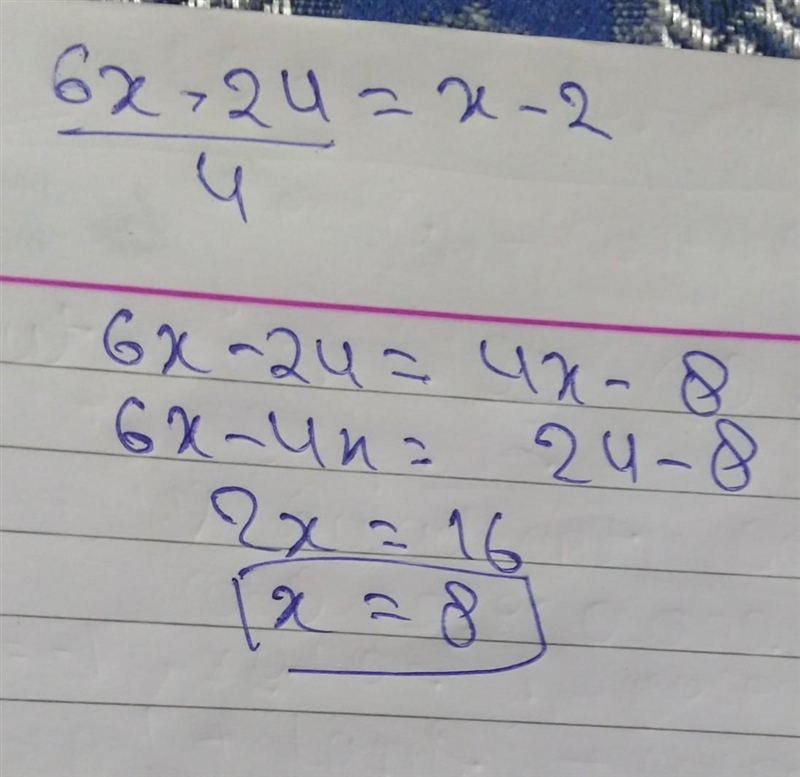 6x - 24 = x - 2
4
6x - 24 = 4x - 8
6x - 4x = 24 - 8
2x = 16
x = 8